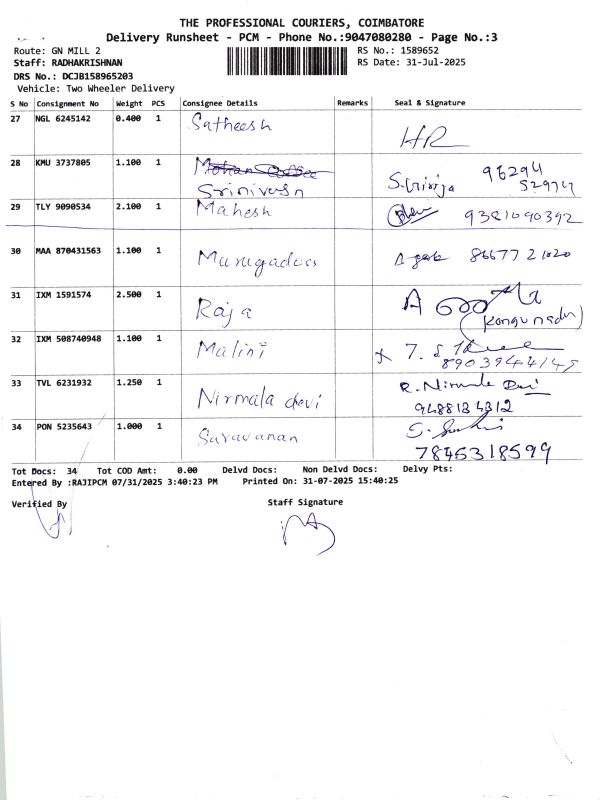 THE PROFESSIONAL COURIERS, COIMBATORE
Delivery Runsheet - PCM - Phone No.:9047080280 - Page No.:3
Route: GN MILL 2
RS No.: 1589652
Staff: RADHAKRISHNAN
RS Date: 31-Jul-2025
DRS No.: DCJB158965203
Vehicle: Two Wheeler Delivery
S No Consignment No Weight PCS Consignee Details Remarks Seal & Signature
27 NGL 6245142 0.400 1 Satheesh
HR
28 KMU 3737805 1.100 1 Mohan
Srinivasn
96294
52974
29 TLY 9090534 2.100 1 Mahesh 9381090392
30 MAA 870431563 1.100 1 Murugadoss 86677 21020
31 IXM 1591574 2.500 1 Raja
(Kongunadu)
32 IXM 508740948 1.100 1 Malini
8903944145
33 TVL 6231932 1.250 1 Nirmala devi R. Nirmala Devi
9488134312
34 PON 5235643 1.000 1 Saravanan
7845318599
Tot Docs: 34 Tot COD Amt: 0.00 Delvd Docs: Non Delvd Docs: Delvy Pts:
Entered By :RAJIPCM 07/31/2025 3:40:23 PM Printed On: 31-07-2025 15:40:25
Verified By Staff Signature